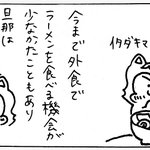 今まで外食で
ラーメンを食べる機会が
少なかったこともあり
旦那は
イタダキマ